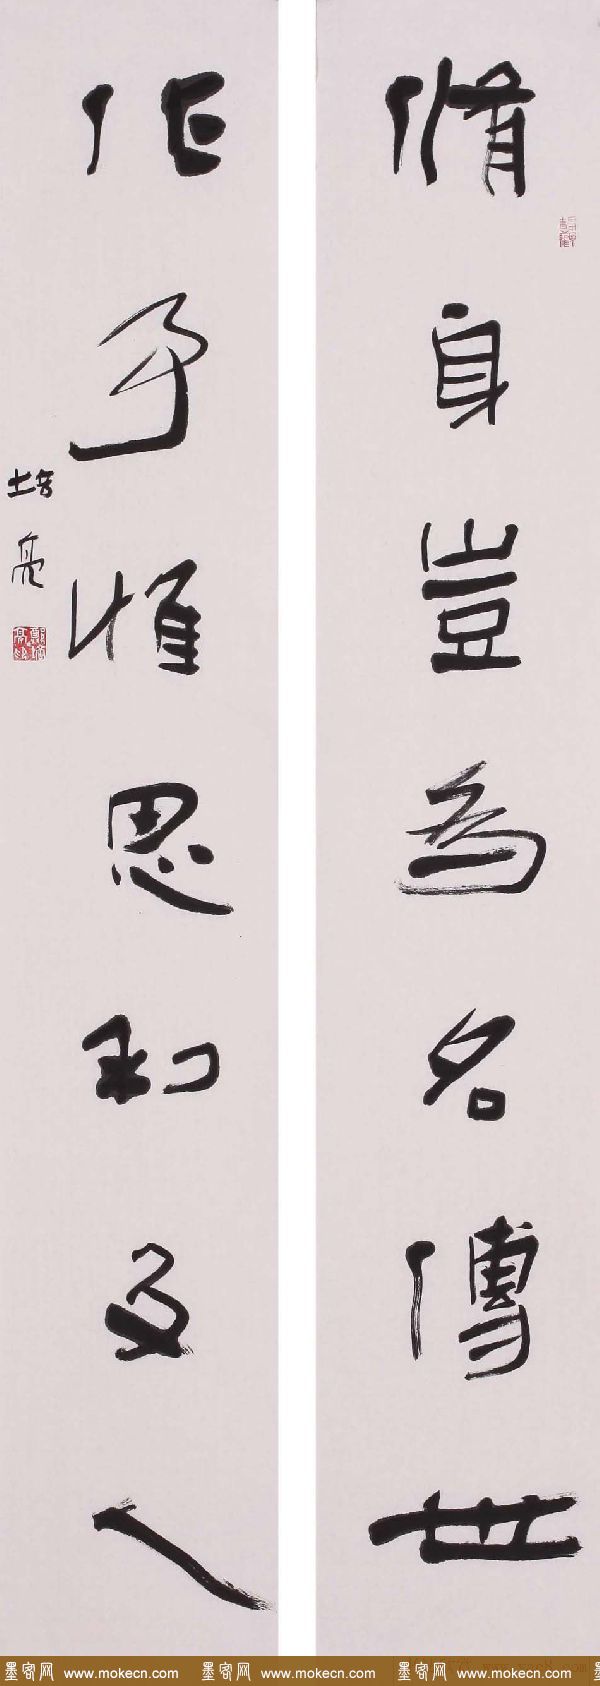 脩身豈為名傳世
作事惟思利及人
培亮
墨客网 www.mokecn.com 墨客网 www.mokecn.com 墨客网 www.mokecn.com